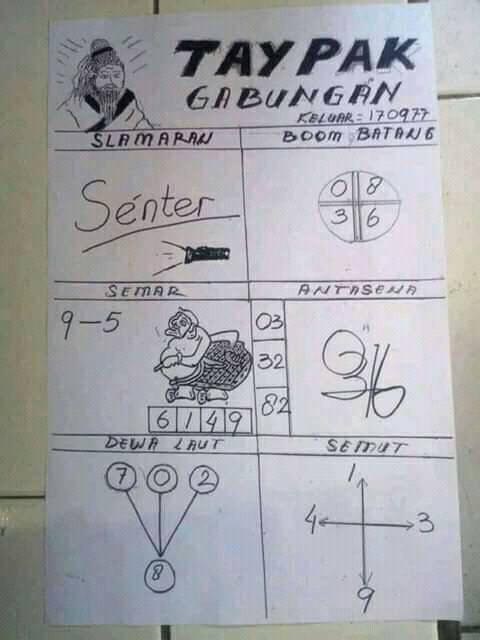 TAYPAK
GABUNGAN
KELUAR = 170977
SLAMARAN
BOOM BATANG
Sénter
0 8
3 6
SEMAR
ANTASENA
9-5
03
32
82
6 1 4 9
DEWA LAUT
SEMUT
7 0 2
8
1
4 3
9